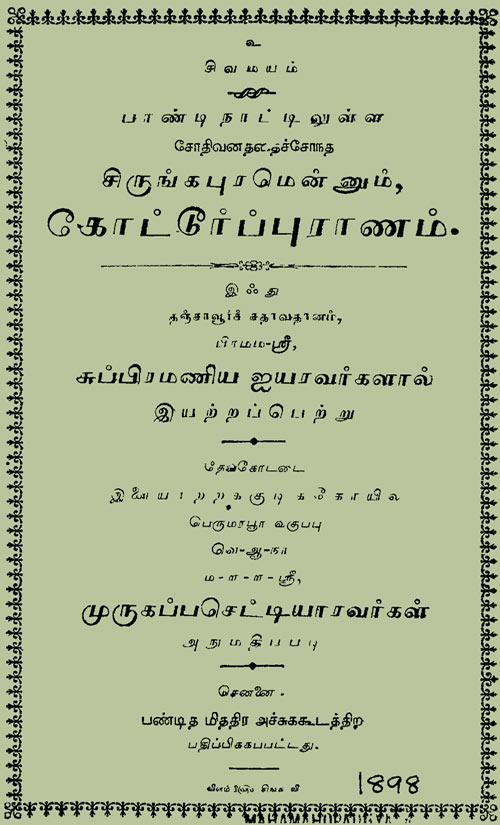 உ
சிவமயம்
பாண்டிநாட்டிலுள்ள
சோதிவனதலத்தச்சோந்த
சிருங்கபுரமென்னும்,
கோட்டூர்ப்புராணம்.
இஃது
தஞ்சாவூர்ச் சதாவதானம்,
பிரமம-ஸ்ரீ,
சுப்பிரமணிய ஐயரவர்களால்
இயற்றப்பெற்று
தேவகோடடை
இளையாற்றக்குடி
பெருமரபூர் வகுபபு
லெ-ஆ-நா
ம-ள-ள-ஸ்ரீ,
முருகப்பசெட்டியாரவர்கள்
அநுமதிபபடி
சென்னை.
பண்டித மித்திர அச்சுககூடத்திற
பதிப்பிககபபட்டது.
1898